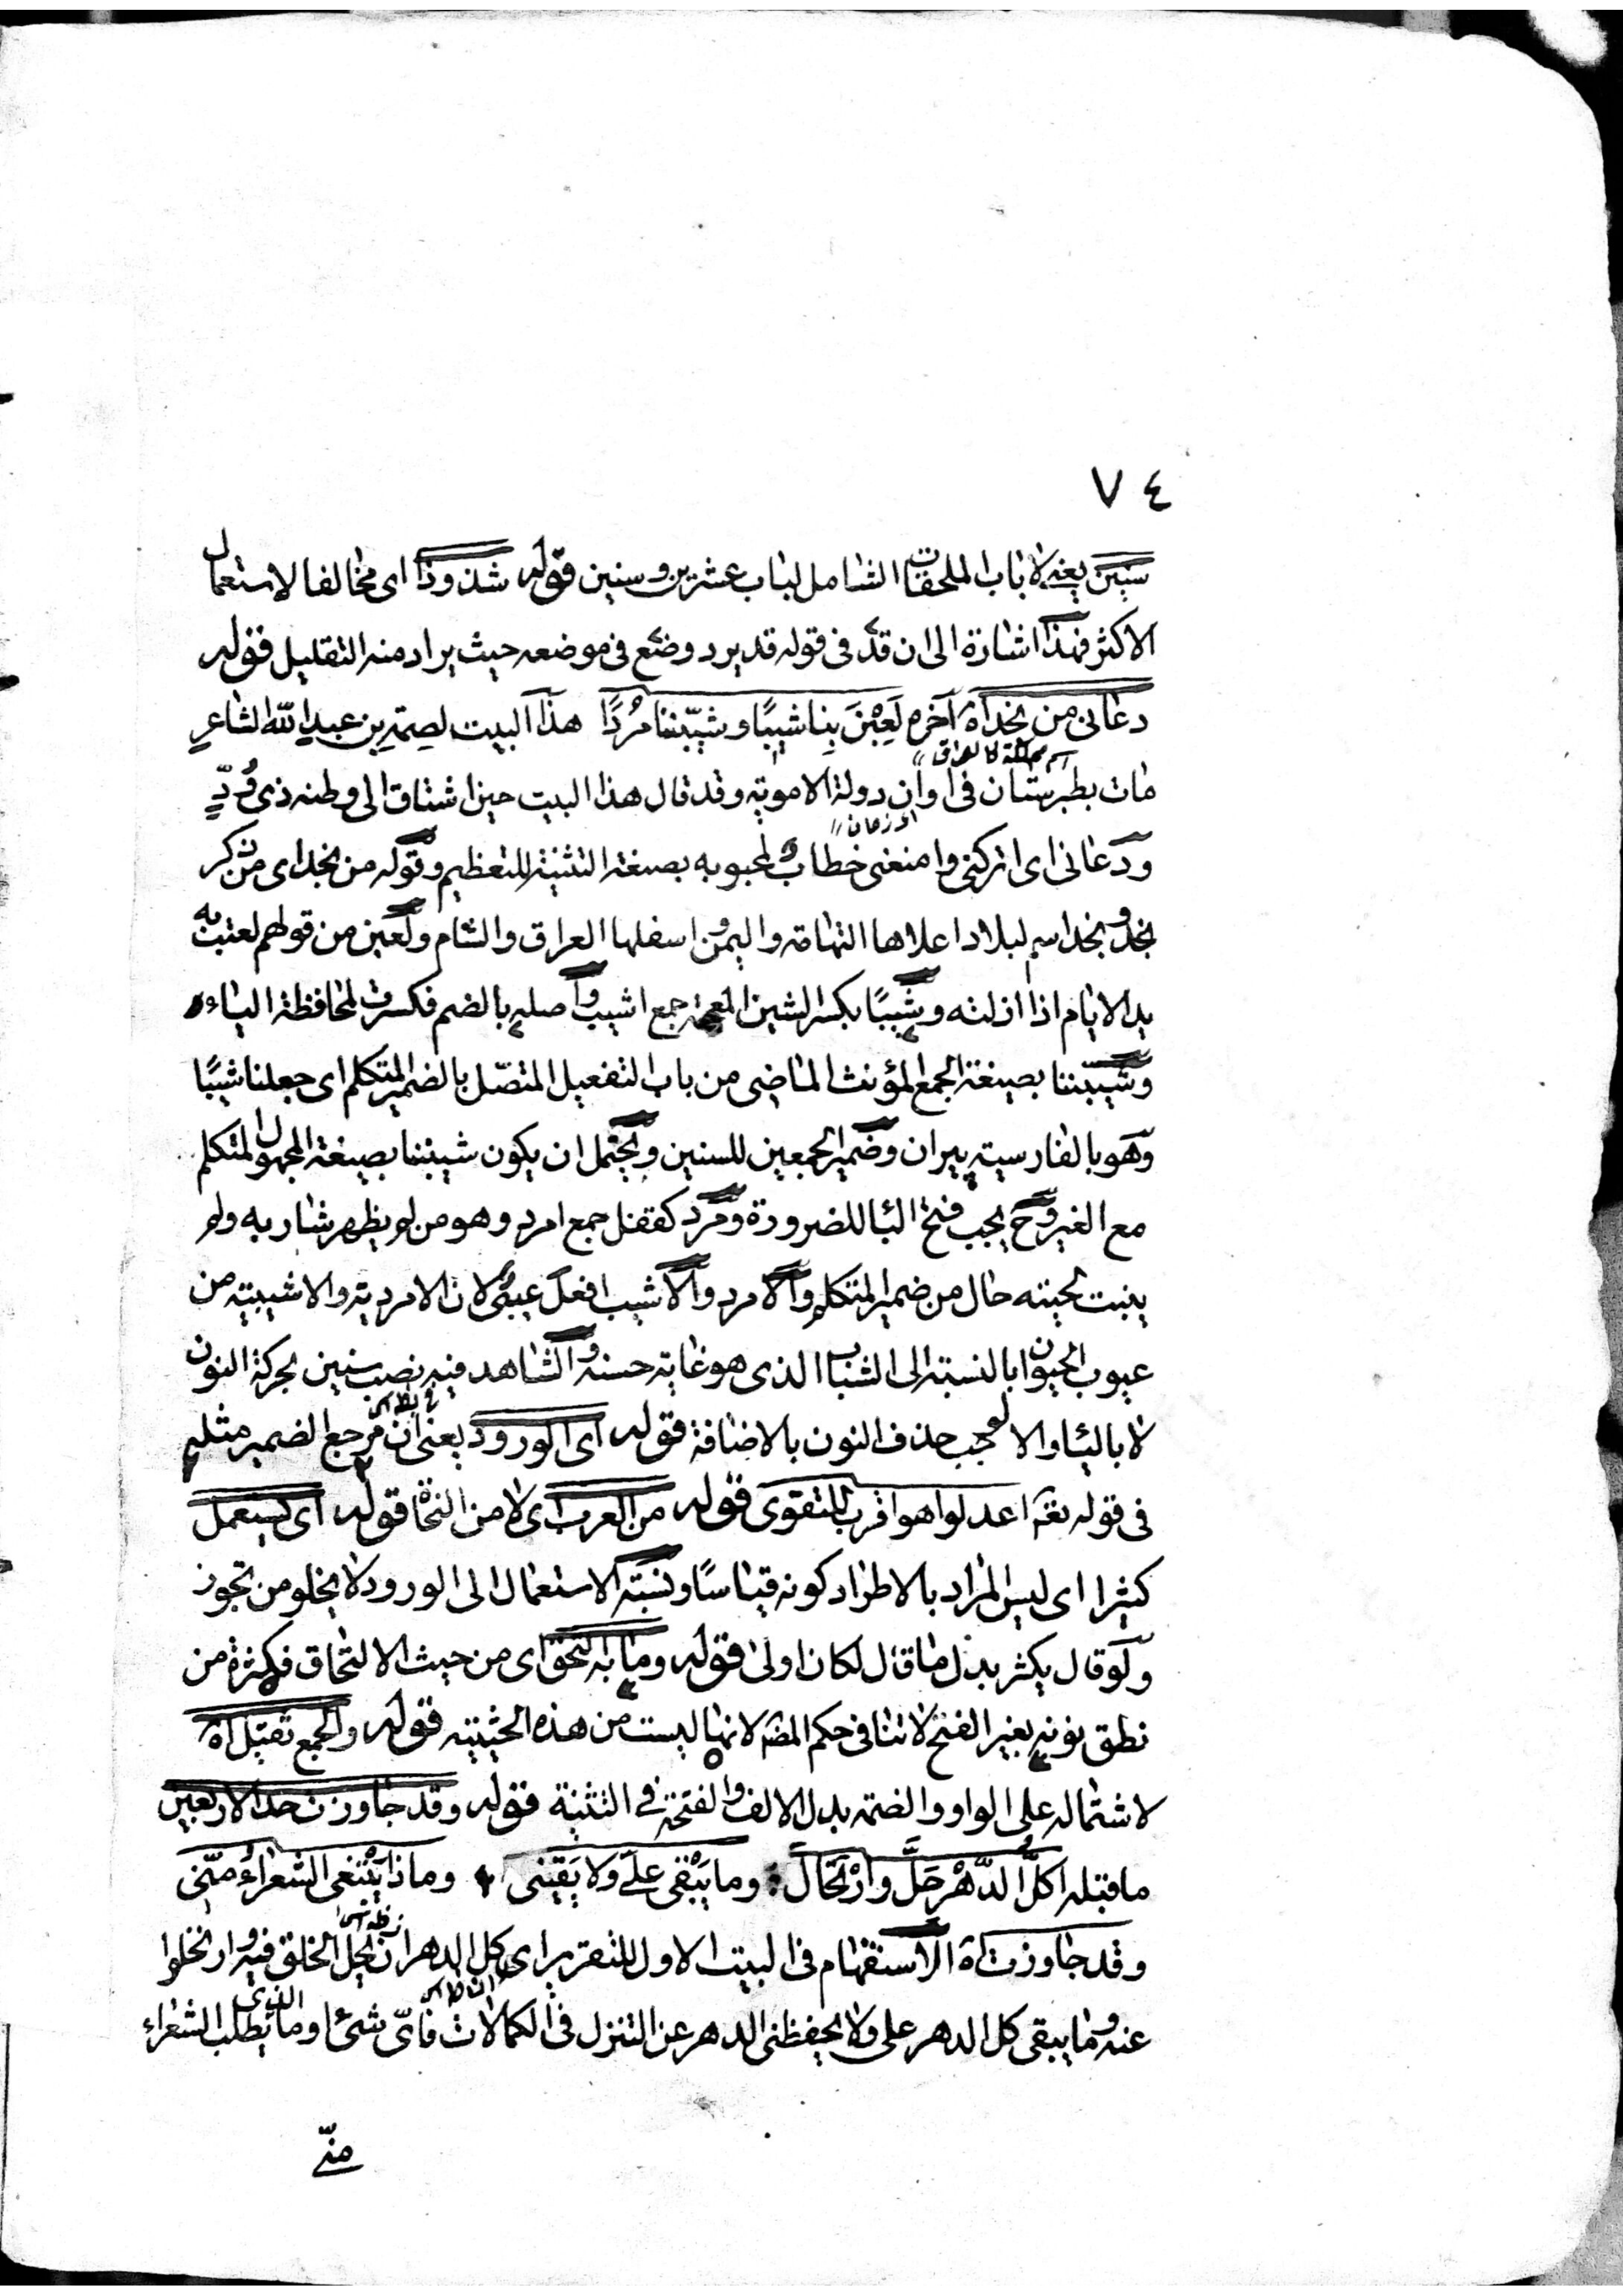 ٧٤
سنين يعنے لا باب الملحقات الشامل لباب عشرين وسنين قوله شذوذا اى مخالفا لاستعمال
الاكثر فهذا اشارة الى ان قد فى قوله قد يرد وضع فى موضعه حيث يراد منه التقليل قوله
دعانى من نجد اه آخره لَعِبْنَ بِنا شيبًا وشيّبننا مُردًا هذا البيت لصمة بن عبد الله الشاعر
مات بطبرستان فى اوان دولة الاموية وقد قال هذا البيت حين اشتاق الى وطنه ذى وُدٍّ
ودعانى اى اتركنى وامنعنى خطاب لمحبوبه بصيغة التثنية للتعظيم وقوله من نجد اى من ذكر
نجد ونجد اسم لبلاد اعلاها التهامة واليمن واسفلها العراق والشام ولعبن من قولهم لعبت به
يد الايام اذا ازلته وشيبًا بكسر الشين المعجمة جمع اشيب واصله بالضم فكسرت لمحافظة الياء
وشيّبننا بصيغة الجمع المؤنث الماضى من باب التفعيل المتصل بالضمير المتكلم اى جعلنا شيبًا
وهو بالفارسية پيران وضمير الجمعين للسنين ويحتمل ان يكون شيبننا بصيغة المجهول المتكلم
مع الغير وح يجب فتح البا للضرورة ومرد كقفل جمع امرد وهو من لم يظهر شاربه ولم
ينبت لحيته حال من ضمير المتكلم والامرد والاشيب افعل عيبى لان الامردية والاشيبية من
عيوب الحيوان بالنسبة الى الشباب الذى هو غاية حسنه والشاهد فيه نصب سنين بحركة النون
لا بالياء والا لوجب حذف النون بالاضافة قوله اى الورود يعنى ان مرجع الضمير مثله
فى قوله تعه اعدلوا هو اقرب للتقوى قوله من العرب اى لا من النحاة قوله اى يستعمل
كثيرا اى ليس المراد بالاطراد كونه قياسًا ونسبة الاستعمال الى الورود لا يخلو من تجوز
ولو قال يكثر بدل ما قال لكان اولى قوله وما به التحق اى من حيث الالتحاق فكثرة من
نطق نونه بغير الفتح لا تنافى حكم المصہ لانها ليست من هذه الحيثية قوله والجمع ثقيل اه
لاشتماله على الواو والضمة بدل الالف والفتحة فى التثنية قوله وقد جاوزت حد الاربعين
ما قبله اكلُّ الدَّهْرِ حَلٌّ وارْتحَالٌ وما يَبْقى علىَّ ولا يَقِينى وماذا يَبْتغى الشعراءُ منّى
وقد جاوزت اه الاستفهام فى البيت الاول للتقرير اى كل الدهر ان يحل الخلق فيه وارتحلوا
عنه وما يبقى كل الدهر على ولا يحفظنى الدهر عن التنزل فى الكمالات فاىّ شئ او ما الذى يطلب الشعراء
منّے